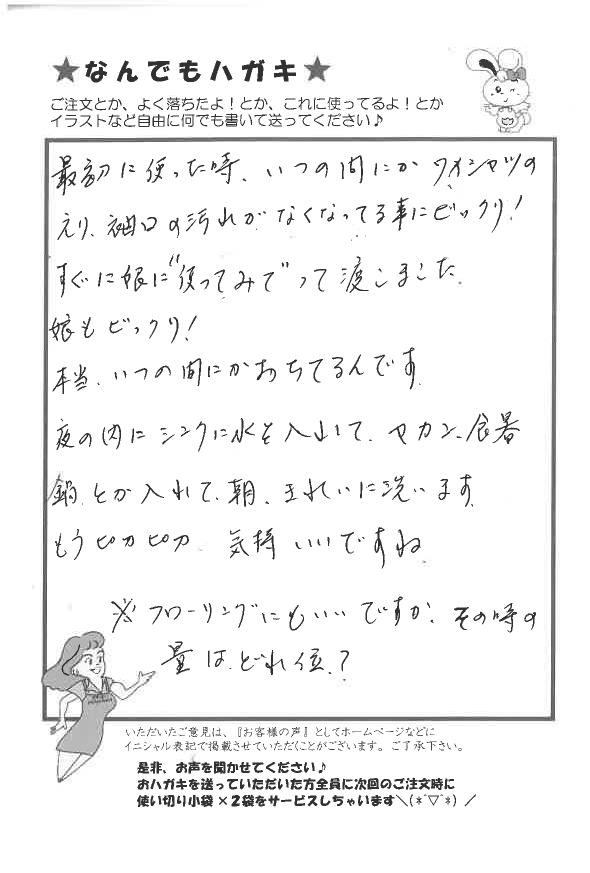 ★なんでもハガキ★
ご注文とか、よく落ちたよ！とか、これに使ってるよ！とか
イラストなど自由に何でも書いて送ってください♪
最初に使った時、いつの間にかワイシャツの
えり、袖口の汚れがなくなってる事にビックリ！
すぐに娘に“使ってみて”って渡しました。
娘もビックリ！
本当、いつの間にかおちてるんです。
夜の内にシンクに水を入れて、ヤカン、食器
鍋、とか入れて、朝、きれいに洗います。
もうピカピカ 気持いいですね。
※フローリングにもいいですか、その時の
量は、どれ位？
いただいたご意見は、『お客様の声』としてホームページなどに
イニシャル表記で掲載させていただくことがございます。ご了承下さい。
是非、お声を聞かせてください♪
おハガキを送っていただいた方全員に次回のご注文時に
使い切り小袋×２袋をサービスしちゃいます＼(*ﾟ▽ﾟ*)／